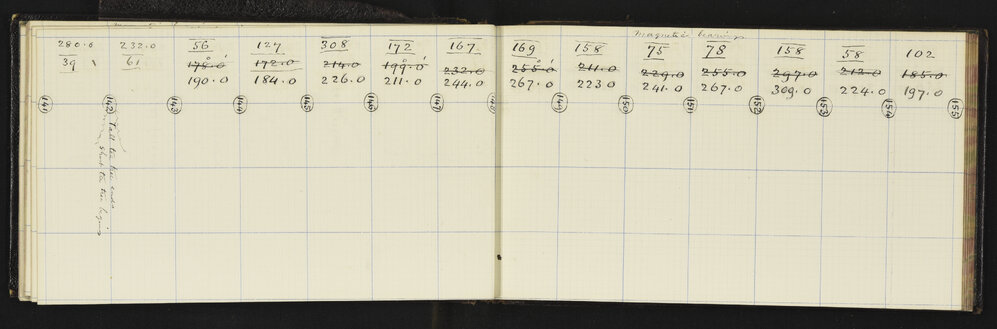 magnetic bearings
280.0 232.0 56 127 308 172 167 169 158 75 78 158 58 102
39 61 178.0 172.0 214.0 199.0 232.0 255.0 211.0 229.0 255.0 297.0 212.0 185.0
190.0 184.0 226.0 211.0 244.0 267.0 223.0 241.0 267.0 309.0 224.0 197.0
141 142 143 144 145 146 147 148 149 150 151 152 153 154 155
Tall tea tree ends
Short tea tree begins